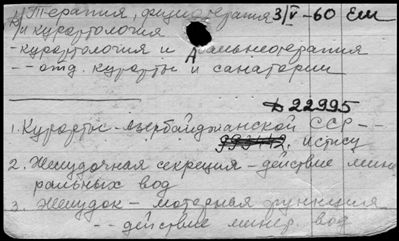 4) Терапия, физиотерапия 3/V-60 Ем
и курортология
- курортология и бальнеотерапия
- - отд. курорты и санатории
Д 22995
1. Курорты - Азербайджанской ССР - -
Истису
2. Желудочная секреция - действие мине
ральных вод
3. Желудок - моторная функция
- - действие минер. вод